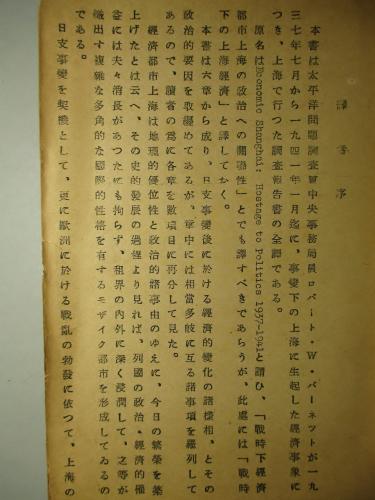 譯者序
本書は太平洋問題調査會中央事務局員ロバート・W・バーネットが一九
三七年七月から一九四一年一月迄に、事變下の上海に生起した經濟事象に
つき、上海で行つた調査報告書の全譯である。
原名はEconomic Shanghai: Hostage to Politics 1937-1941と謂ひ、「戰時下經濟
都市上海の政治への關聯性」とでも譯すべきであらうが、此處には「戰時
下の上海經濟」と譯しておく。
本書は六章から成り、日支事變後に於ける經濟的變化の諸樣相、とその
政治的要因を取纒めてあるが、章中には相當多岐に亙る諸事項を羅列して
あるので、讀者の爲に各章を數項目に再分して見た。
經濟都市上海は地理的優位性と政治的諸事由のゆえに、今日の繁榮を築
上げたとは云へ、その史的發展の過程より見れば、列國の政治・經濟的權
益には夫々消長があつたにも拘らず、租界の內外に深く浸潤して、之等が
織出す複雜な多角的な國際的性格を有するモザイク都市を形成してゐるの
である。
日支事變を契機として、更に歐洲に於ける戰亂の勃發に依つて、上海の